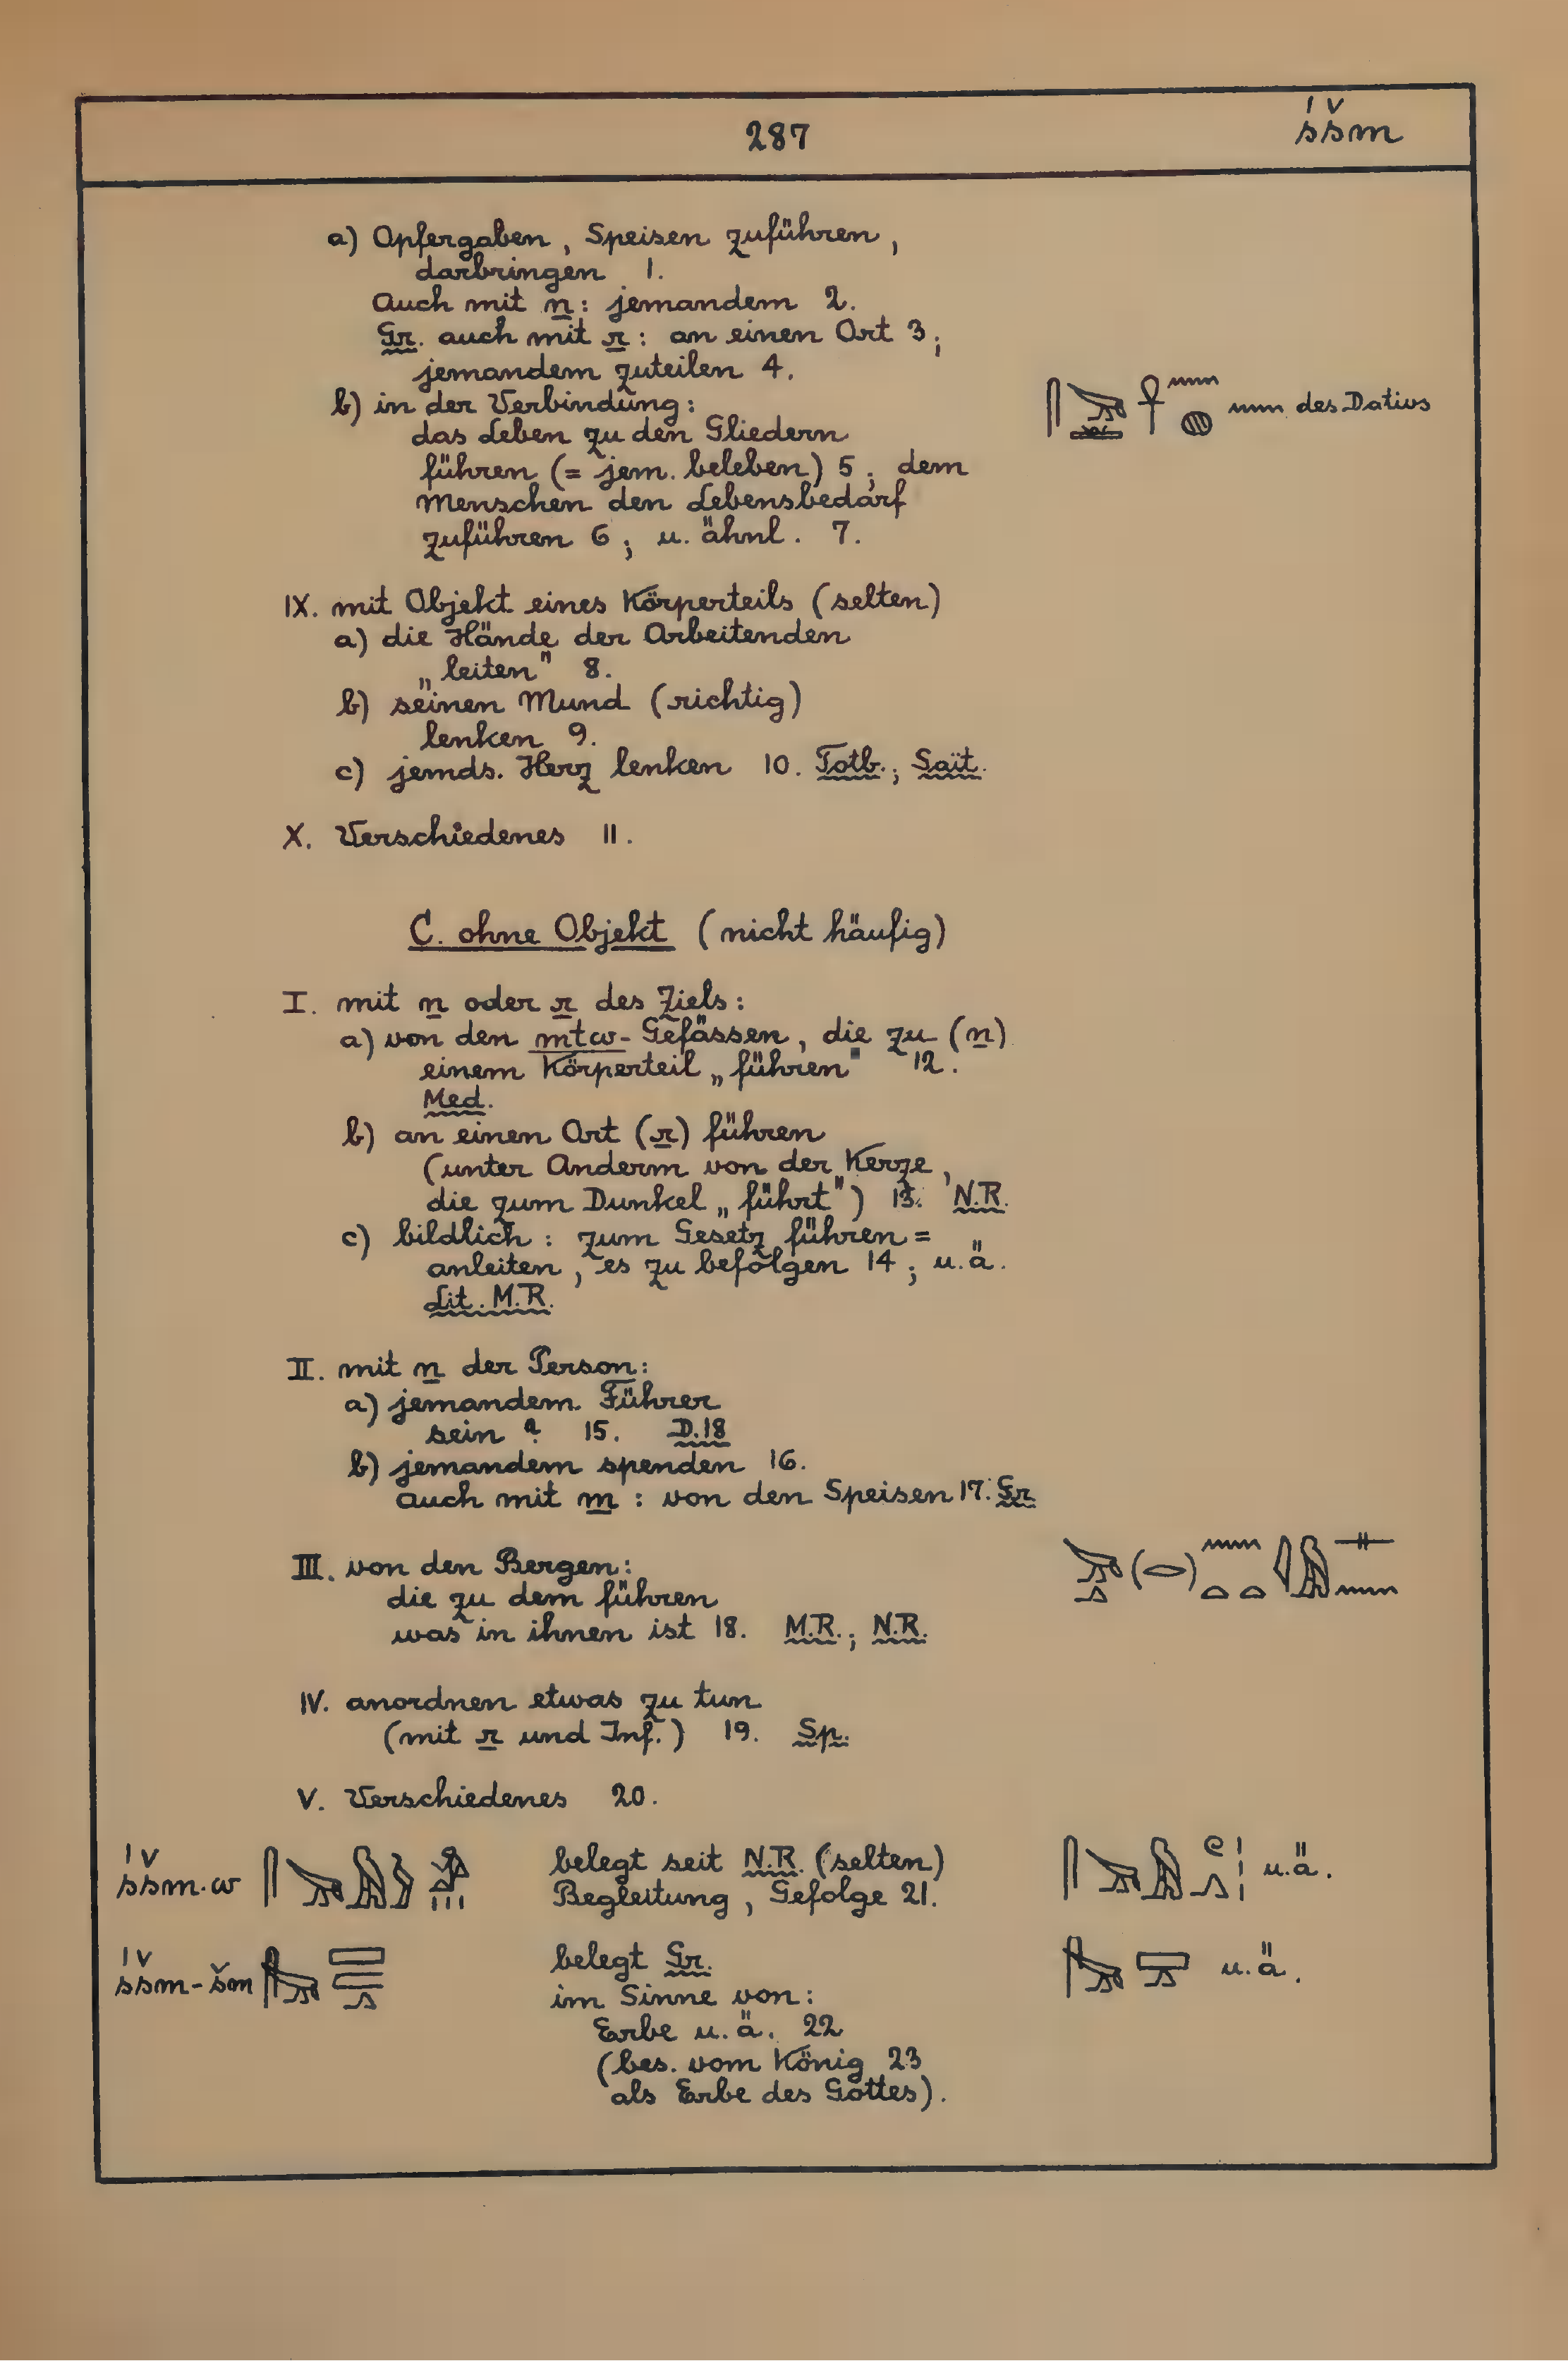 287 śšm
a) Opfergaben, Speisen zuführen,
darbringen 1.
Auch mit n: jemandem 2.
Gr. auch mit r: an einen Ort 3;
jemandem zuteilen 4.
b) in der Verbindung: des Dativs
das Leben zu den Gliedern
führen (= jem. beleben) 5; dem
Menschen den Lebensbedarf
zuführen 6; u. ähnl. 7.
IX. mit Objekt eines Körperteils (selten)
a) die Hände der Arbeitenden
„leiten" 8.
b) seinen Mund (richtig)
lenken 9.
c) jemds. Herz lenken 10. Totb.; Sait.
X. Verschiedenes 11.
C. ohne Objekt (nicht häufig)
I. mit n oder r des Ziels:
a) von den mtw-Gefässen, die zu (n)
einem Körperteil „führen" 12.
Med.
b) an einen Ort (r) führen
(unter Anderm von der Kerze,
die zum Dunkel „führt") 13. N.R.
c) bildlich: zum Gesetz führen =
anleiten, es zu befolgen 14; u.ä.
Lit. M.R.
II. mit n der Person:
a) jemandem Führer
sein ? 15. D.18
b) jemandem spenden 16.
auch mit m: von den Speisen 17. Gr.
III. von den Bergen:
die zu dem führen
was in ihnen ist 18. M.R.; N.R.
IV. anordnen etwas zu tun
(mit r und Inf.) 19. Sp.
V. Verschiedenes 20.
śšm·w belegt seit N.R. (selten) u.ä.
Begleitung, Gefolge 21.
śšm-šm belegt Gr. u.ä.
im Sinne von:
Erbe u.ä. 22
(bes. vom König 23
als Erbe des Gottes).